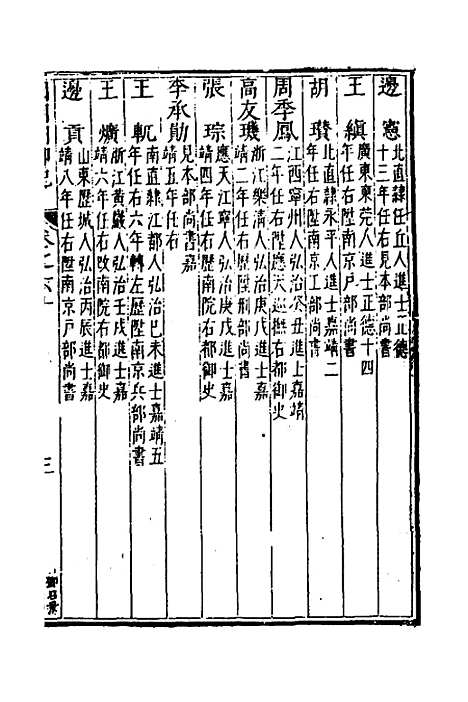 邊憲
北直隸任丘人進士正德
十三年任右見本部尚書
王縝
廣東東莞人進士正德十四
年任右陞南京戶部尚書
胡瓚
北直隸永平人進士嘉靖二
年任右陞南京工部尚書
周季鳳
江西寧州人弘治癸丑進士嘉靖
二年任右陞應天巡撫右都御史
高友璣
浙江樂清人弘治庚戌進士嘉
靖二年任右陞歷刑部尚書
張琮
應天江寧人弘治庚戌進士嘉
靖四年任右歷南院右都御史
李承勛
見本部尚書嘉
靖五年任右
王軏
南直隸江都人弘治己未進士嘉靖五
年任右六年轉左歷陞南京兵部尚書
王爌
浙江黃巖人弘治壬戌進士嘉
靖六年任右改南院右都御史
邊貢
山東歷城人弘治丙辰進士嘉
靖八年任右陞南京戶部尚書
卷之六十
三